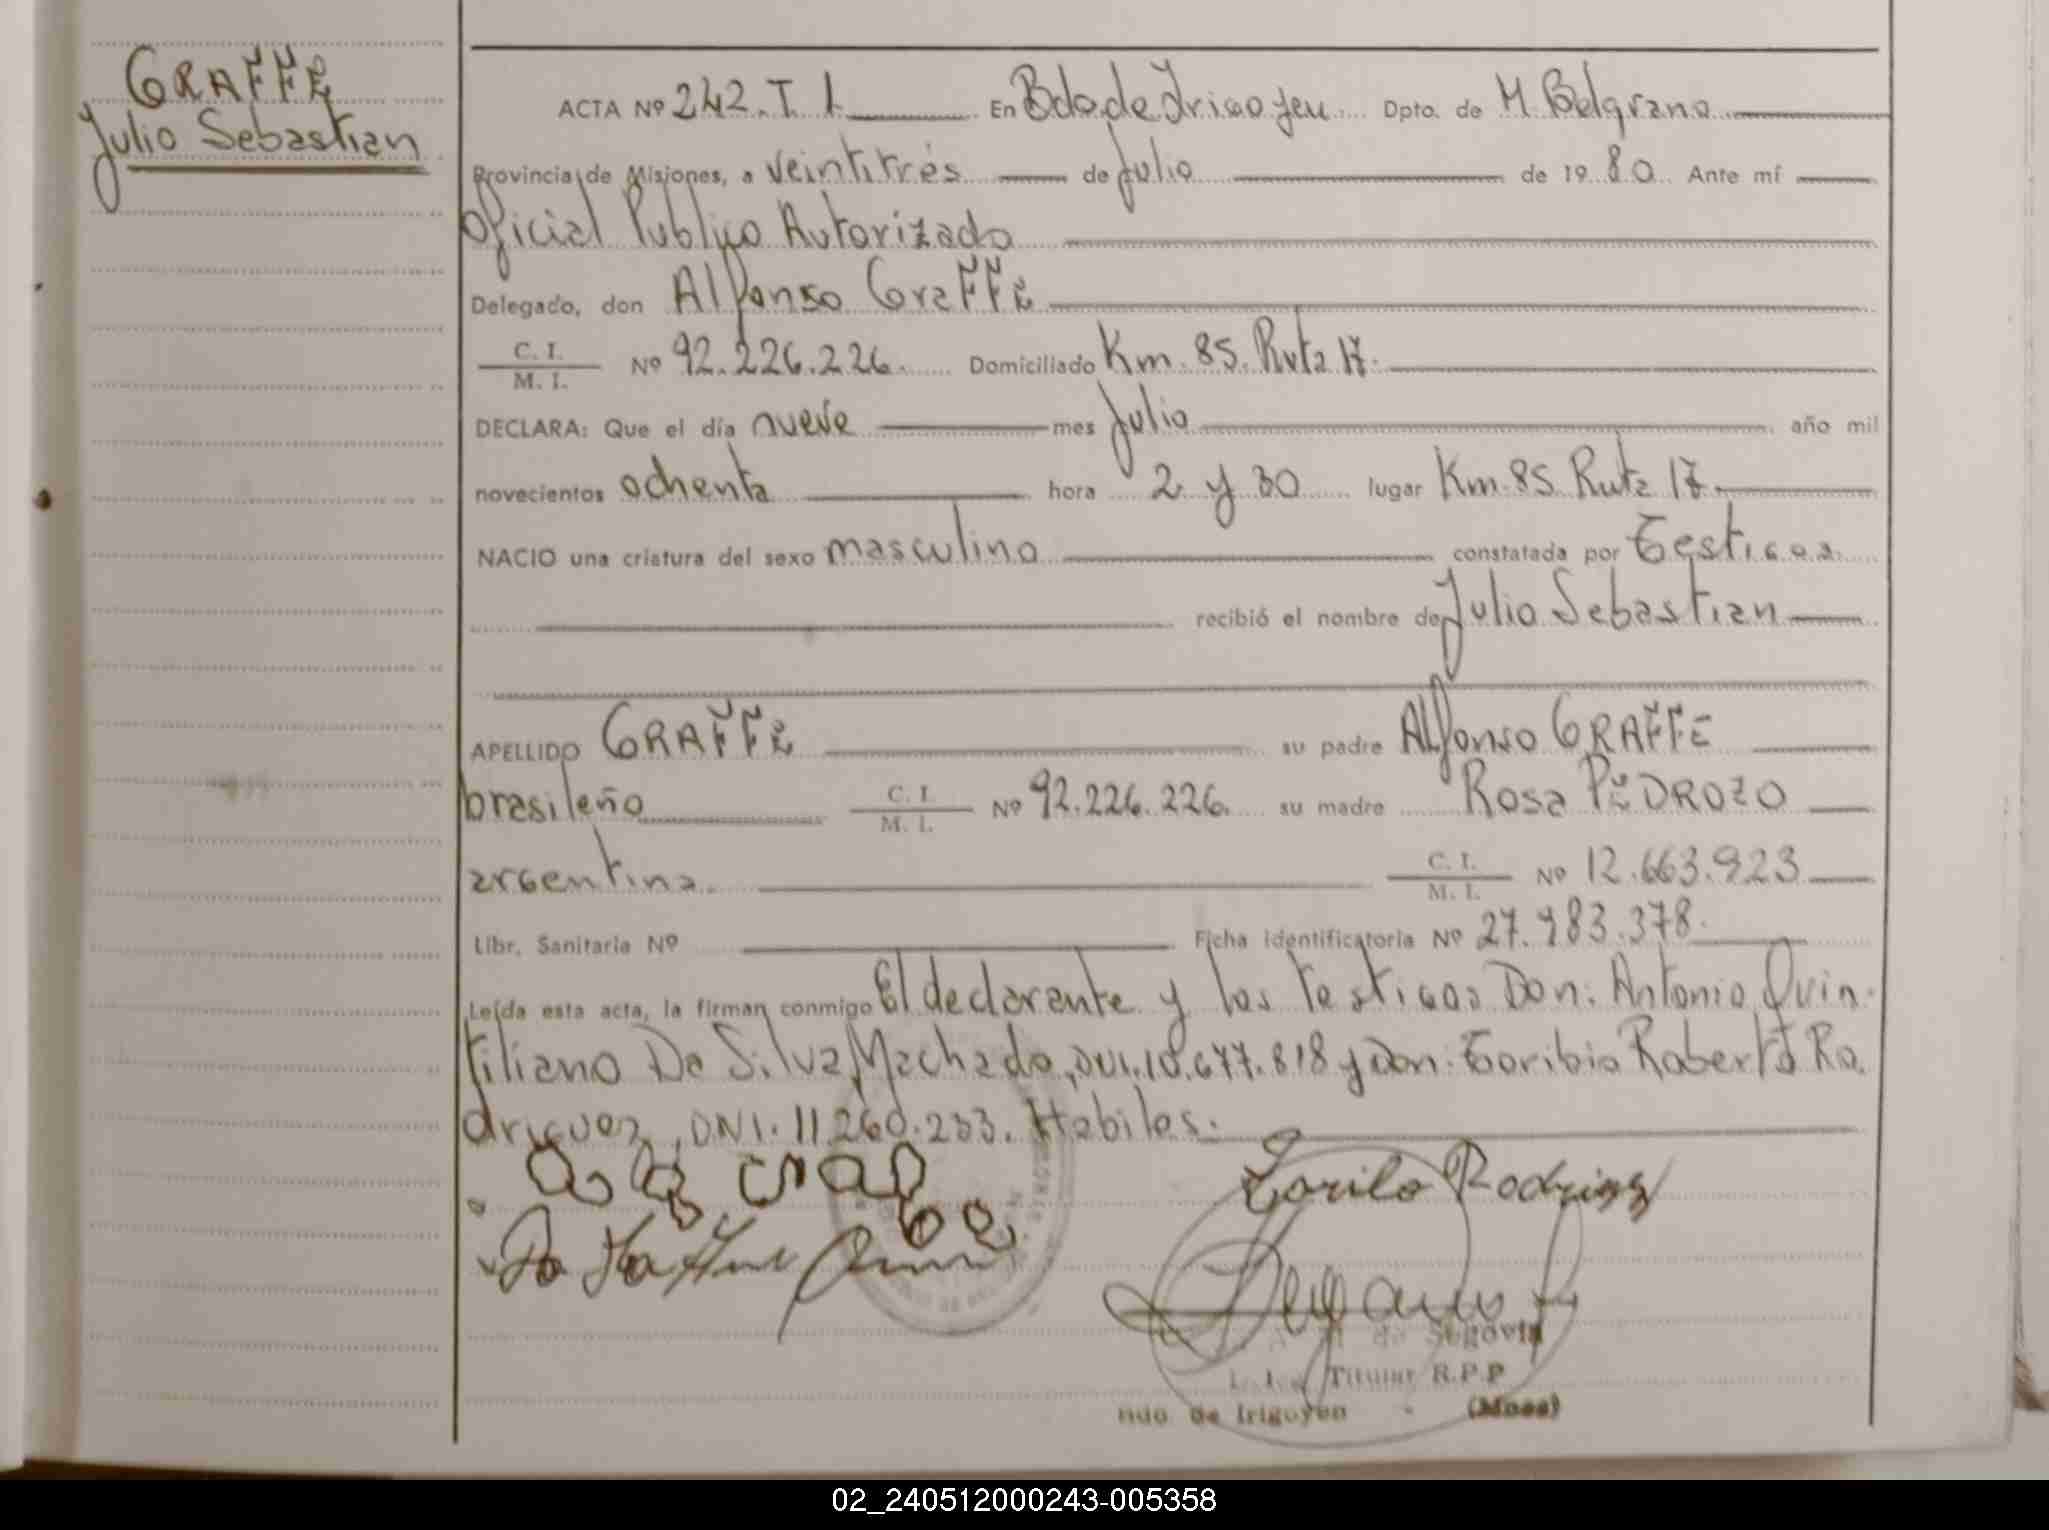 GRAFFE
Julio Sebastian
ACTA Nº 242. T I. En Bdo de Irigoyen Dpto. de M. Belgrano
Provincia de Misiones, a veintitrés de Julio de 19 80 Ante mí
Oficial Publico Autorizado
Delegado, don Alfonso Graffe
C. I. / M. I. Nº 92.226.226. Domiciliado Km. 85. Ruta 17.
DECLARA: Que el día nueve mes Julio año mil
novecientos ochenta hora 2 y 30 lugar Km. 85 Ruta 17.
NACIO una criatura del sexo masculino constatada por Testigos
recibió el nombre de Julio Sebastian
APELLIDO GRAFFE su padre Alfonso GRAFFE
brasileño C. I. / M. I. Nº 92.226.226. su madre Rosa PEDROZO
argentina. C. I. / M. I. Nº 12.663.923
Libr. Sanitaria Nº Ficha identificatoria Nº 27.983.378.
Leída esta acta, la firman conmigo El declarante y los testigos Don: Antonio Quin-
tiliano Da Silva Machado, DNI. 18.677.818 y Don: Toribio Roberto Ro.
driguez, DNI. 11.260.233. Habiles.
Rodriguez
de Segovia
Titular R.P.P
Bdo. de Irigoyen - (Mnes)
02_240512000243-005358